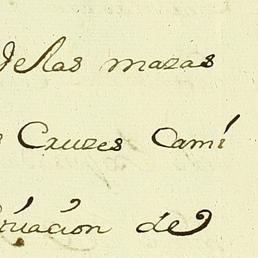 de las mazas
Cruzes Camí
tuación de